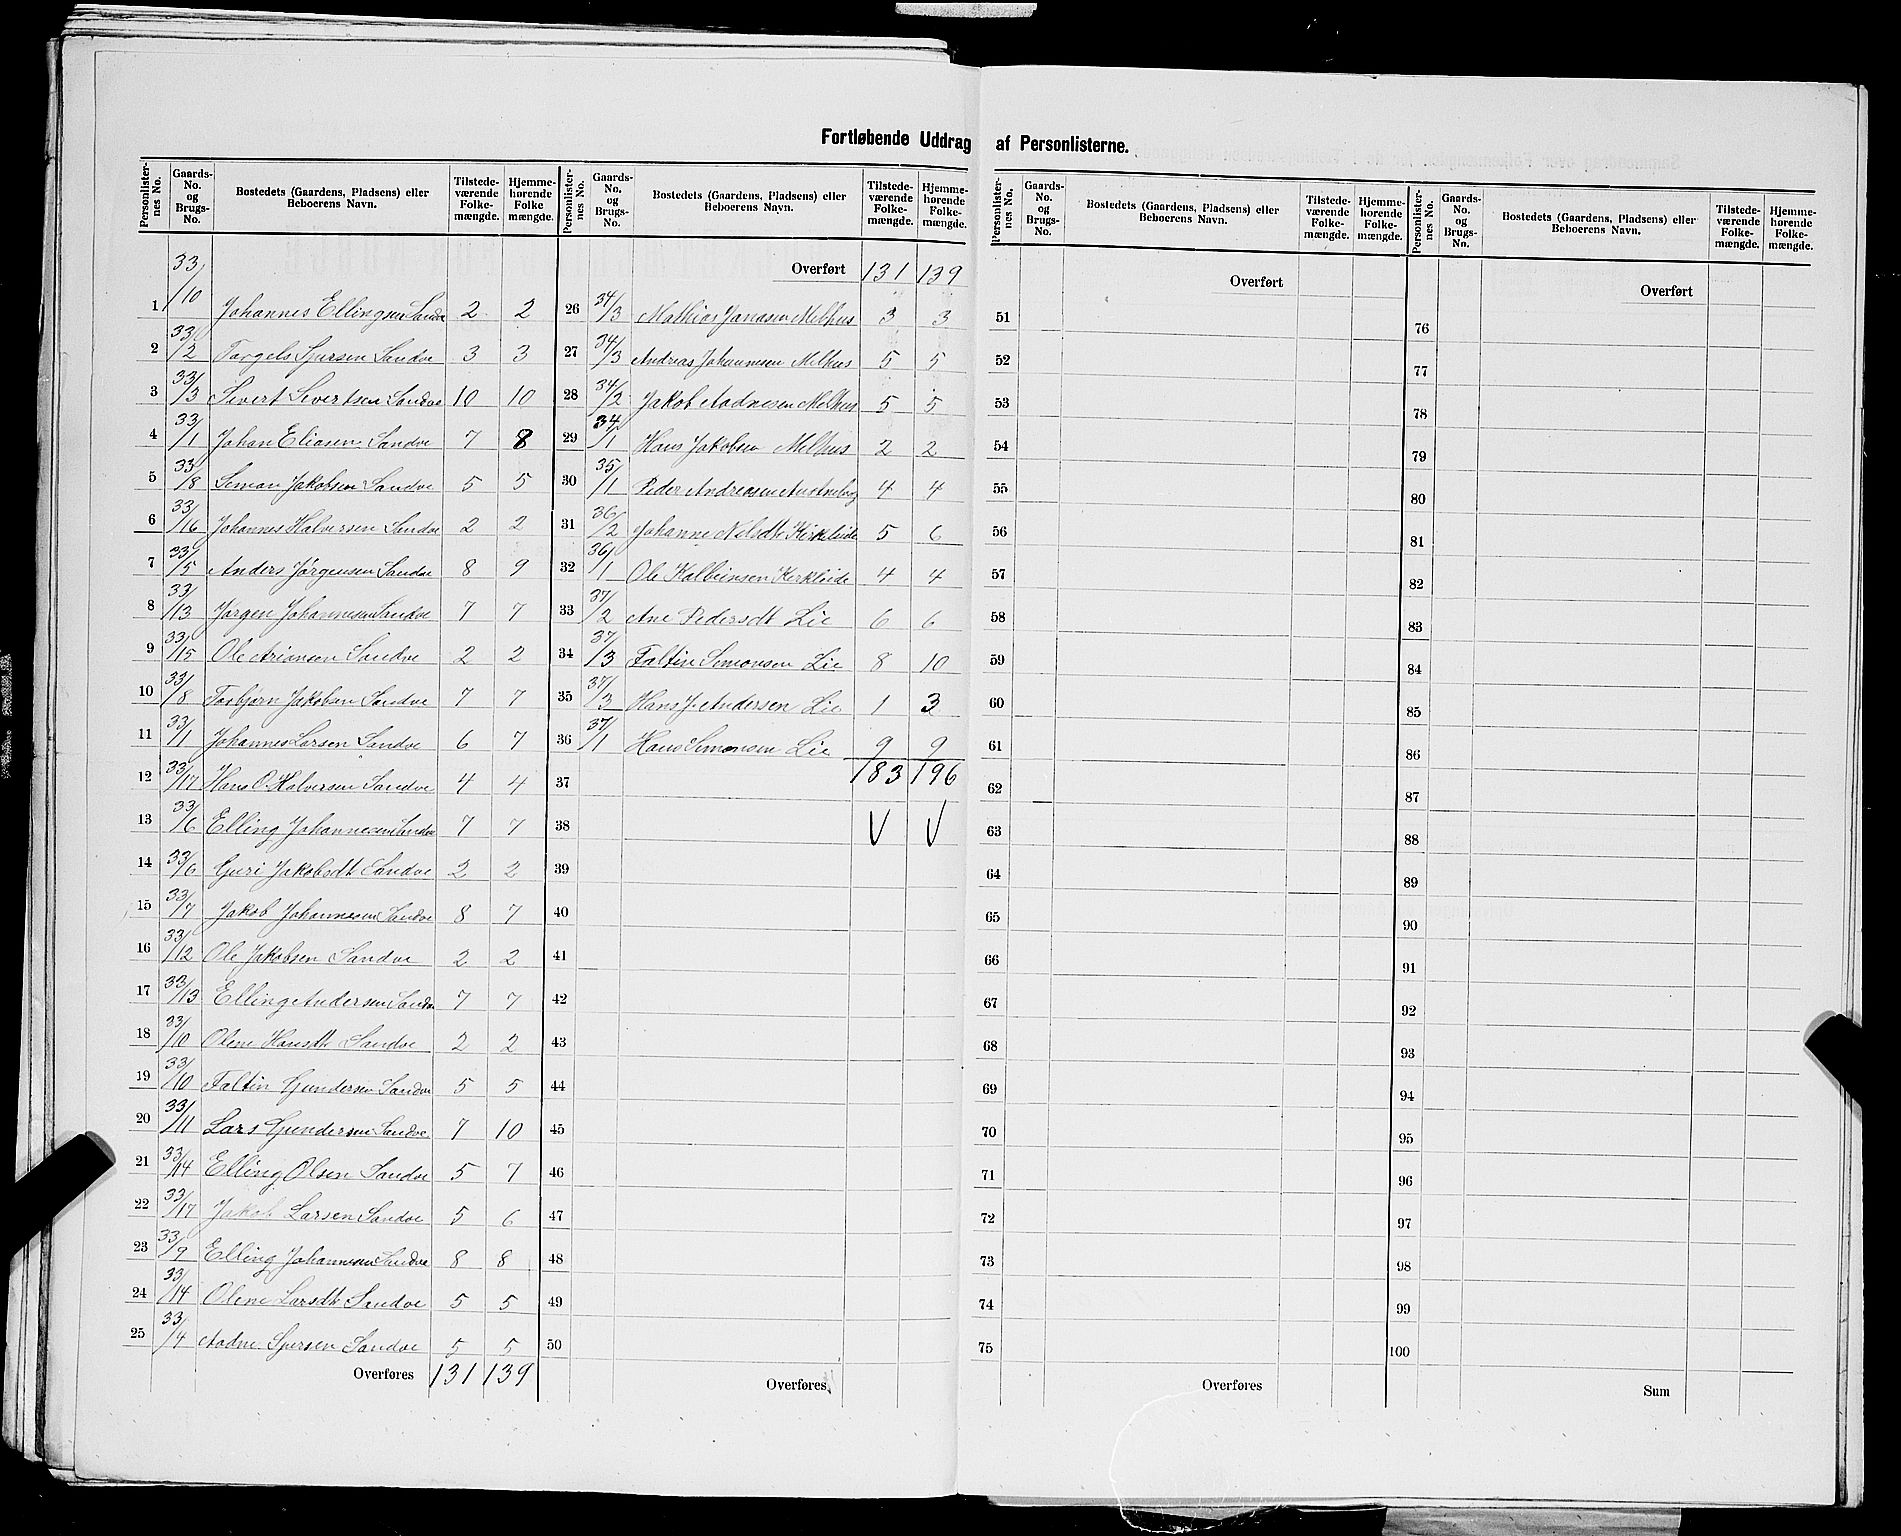 Fortløbende Uddrag af Personlisterne.
Personlister-nes No. | Gaards-No. og Brugs-No. | Bostedets (Gaardens, Pladsens) eller Beboerens Navn. | Tilstede-værende Folke-mængde. | Hjemme-hørende Folke mængde.
1 33/10 Johannes Ellingsen Sandve 2 2
2 33/2 Torgels Sjursen Sandve 3 3
3 33/3 Sivert Sivertsen Sandve 10 10
4 33/1 Johan Eliasen Sandve 7 8
5 33/8 Simon Jakobsen Sandve 5 5
6 33/16 Johannes Halversen Sandve 2 2
7 33/5 Anders Jørgensen Sandve 8 9
8 33/13 Jørgen Johannesen Sandve 7 7
9 33/15 Ole Arionsen Sandve 2 2
10 33/8 Torbjørn Jakobsen Sandve 7 7
11 33/1 Johannes Larsen Sandve 6 7
12 33/17 Hans O. Halversen Sandve 4 4
13 33/6 Elling Johannesen Sandve 7 7
14 33/6 Guri Jakobsdt Sandve 2 2
15 33/7 Jakob Johannesen Sandve 8 7
16 33/12 Ole Jakobsen Sandve 2 2
17 33/13 Elling Andersen Sandve 7 7
18 33/10 Olene Hansdt Sandve 2 2
19 33/10 Faltin Gundersen Sandve 5 5
20 33/11 Lars Gundersen Sandve 7 10
21 33/14 Elling Olsen Sandve 5 7
22 33/17 Jakob Larsen Sandve 5 6
23 33/9 Elling Johannesen Sandve 8 8
24 33/14 Olene Larsdt Sandve 5 5
25 33/4 Aadne Sjursen Sandve 5 5
Overføres 131 139
Personlister-nes No. | Gaards-No. og Brugs-No. | Bostedets (Gaardens, Pladsens) eller Beboerens Navn. | Tilstede-værende Folke-mængde. | Hjemme-hørende Folke-mængde.
Overført 131 139
26 34/3 Mathias Janssen Melhus 3 3
27 34/3 Andreas Johannesen Melhus 5 5
28 34/2 Jakob Aadnesen Melhus 5 5
29 34/1 Hans Jakobsen Melhus 2 2
30 35/1 Peder Andreasen 4 4
31 36/2 Johanne Nelsdt Kirkleide 5 6
32 36/1 Ole Kolbeinsen Kirkleide 4 4
33 37/2 Ane Pedersdt Lie 6 6
34 37/3 Faltin Simonsen Lie 8 10
35 37/3 Hans J. Andersen Lie 1 3
36 37/1 Hans Simonsen Lie 9 9
37 183 196
38 V V
39
40
41
42
43
44
45
46
47
48
49
50
Overføres
Personlister-nes No. | Gaards-No. og Brugs-No. | Bostedets (Gaardens, Pladsens) eller Beboerens Navn. | Tilstede-værende Folke-mængde. | Hjemme-hørende Folke-mængde.
Overført
51
52
53
54
55
56
57
58
59
60
61
62
63
64
65
66
67
68
69
70
71
72
73
74
75
Overføres
Personlister-nes No. | Gaards-No. og Brugs-No. | Bostedets (Gaardens, Pladsens) eller Beboerens Navn. | Tilstede-værende Folke-mængde. | Hjemme-hørende Folke-mængde.
Overført
76
77
78
79
80
81
82
83
84
85
86
87
88
89
90
91
92
93
94
95
96
97
98
99
100
Sum